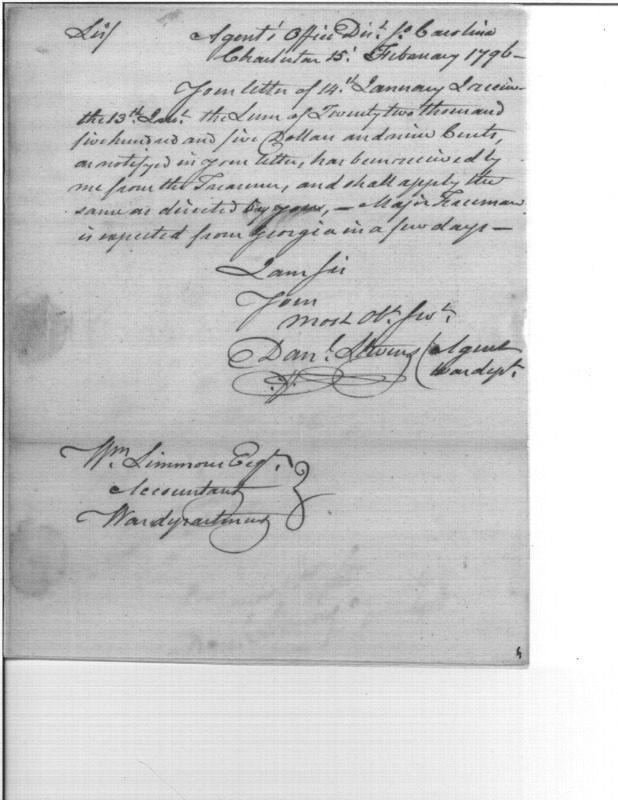 Sir/ Agent's Office Dis.t So. Carolina
Charleston 15.t February 1796—
Your letter of 14.th January I receiv'd
the 13.th Ins.t the Sum of Twenty two thousand
five hundred and five Dollars and nine Cents,
as notifyed in your letter, has been received by
me from the Treasurer, and shall apply the
same as directed by you, — Major Freeman
is expected from Georgia in a few days —
I am Sir
Your
most Ob.t Serv.t
Dan.l Stevens (Agent
War dep.t
Wm Simmons Esq.r
Accountant
War department